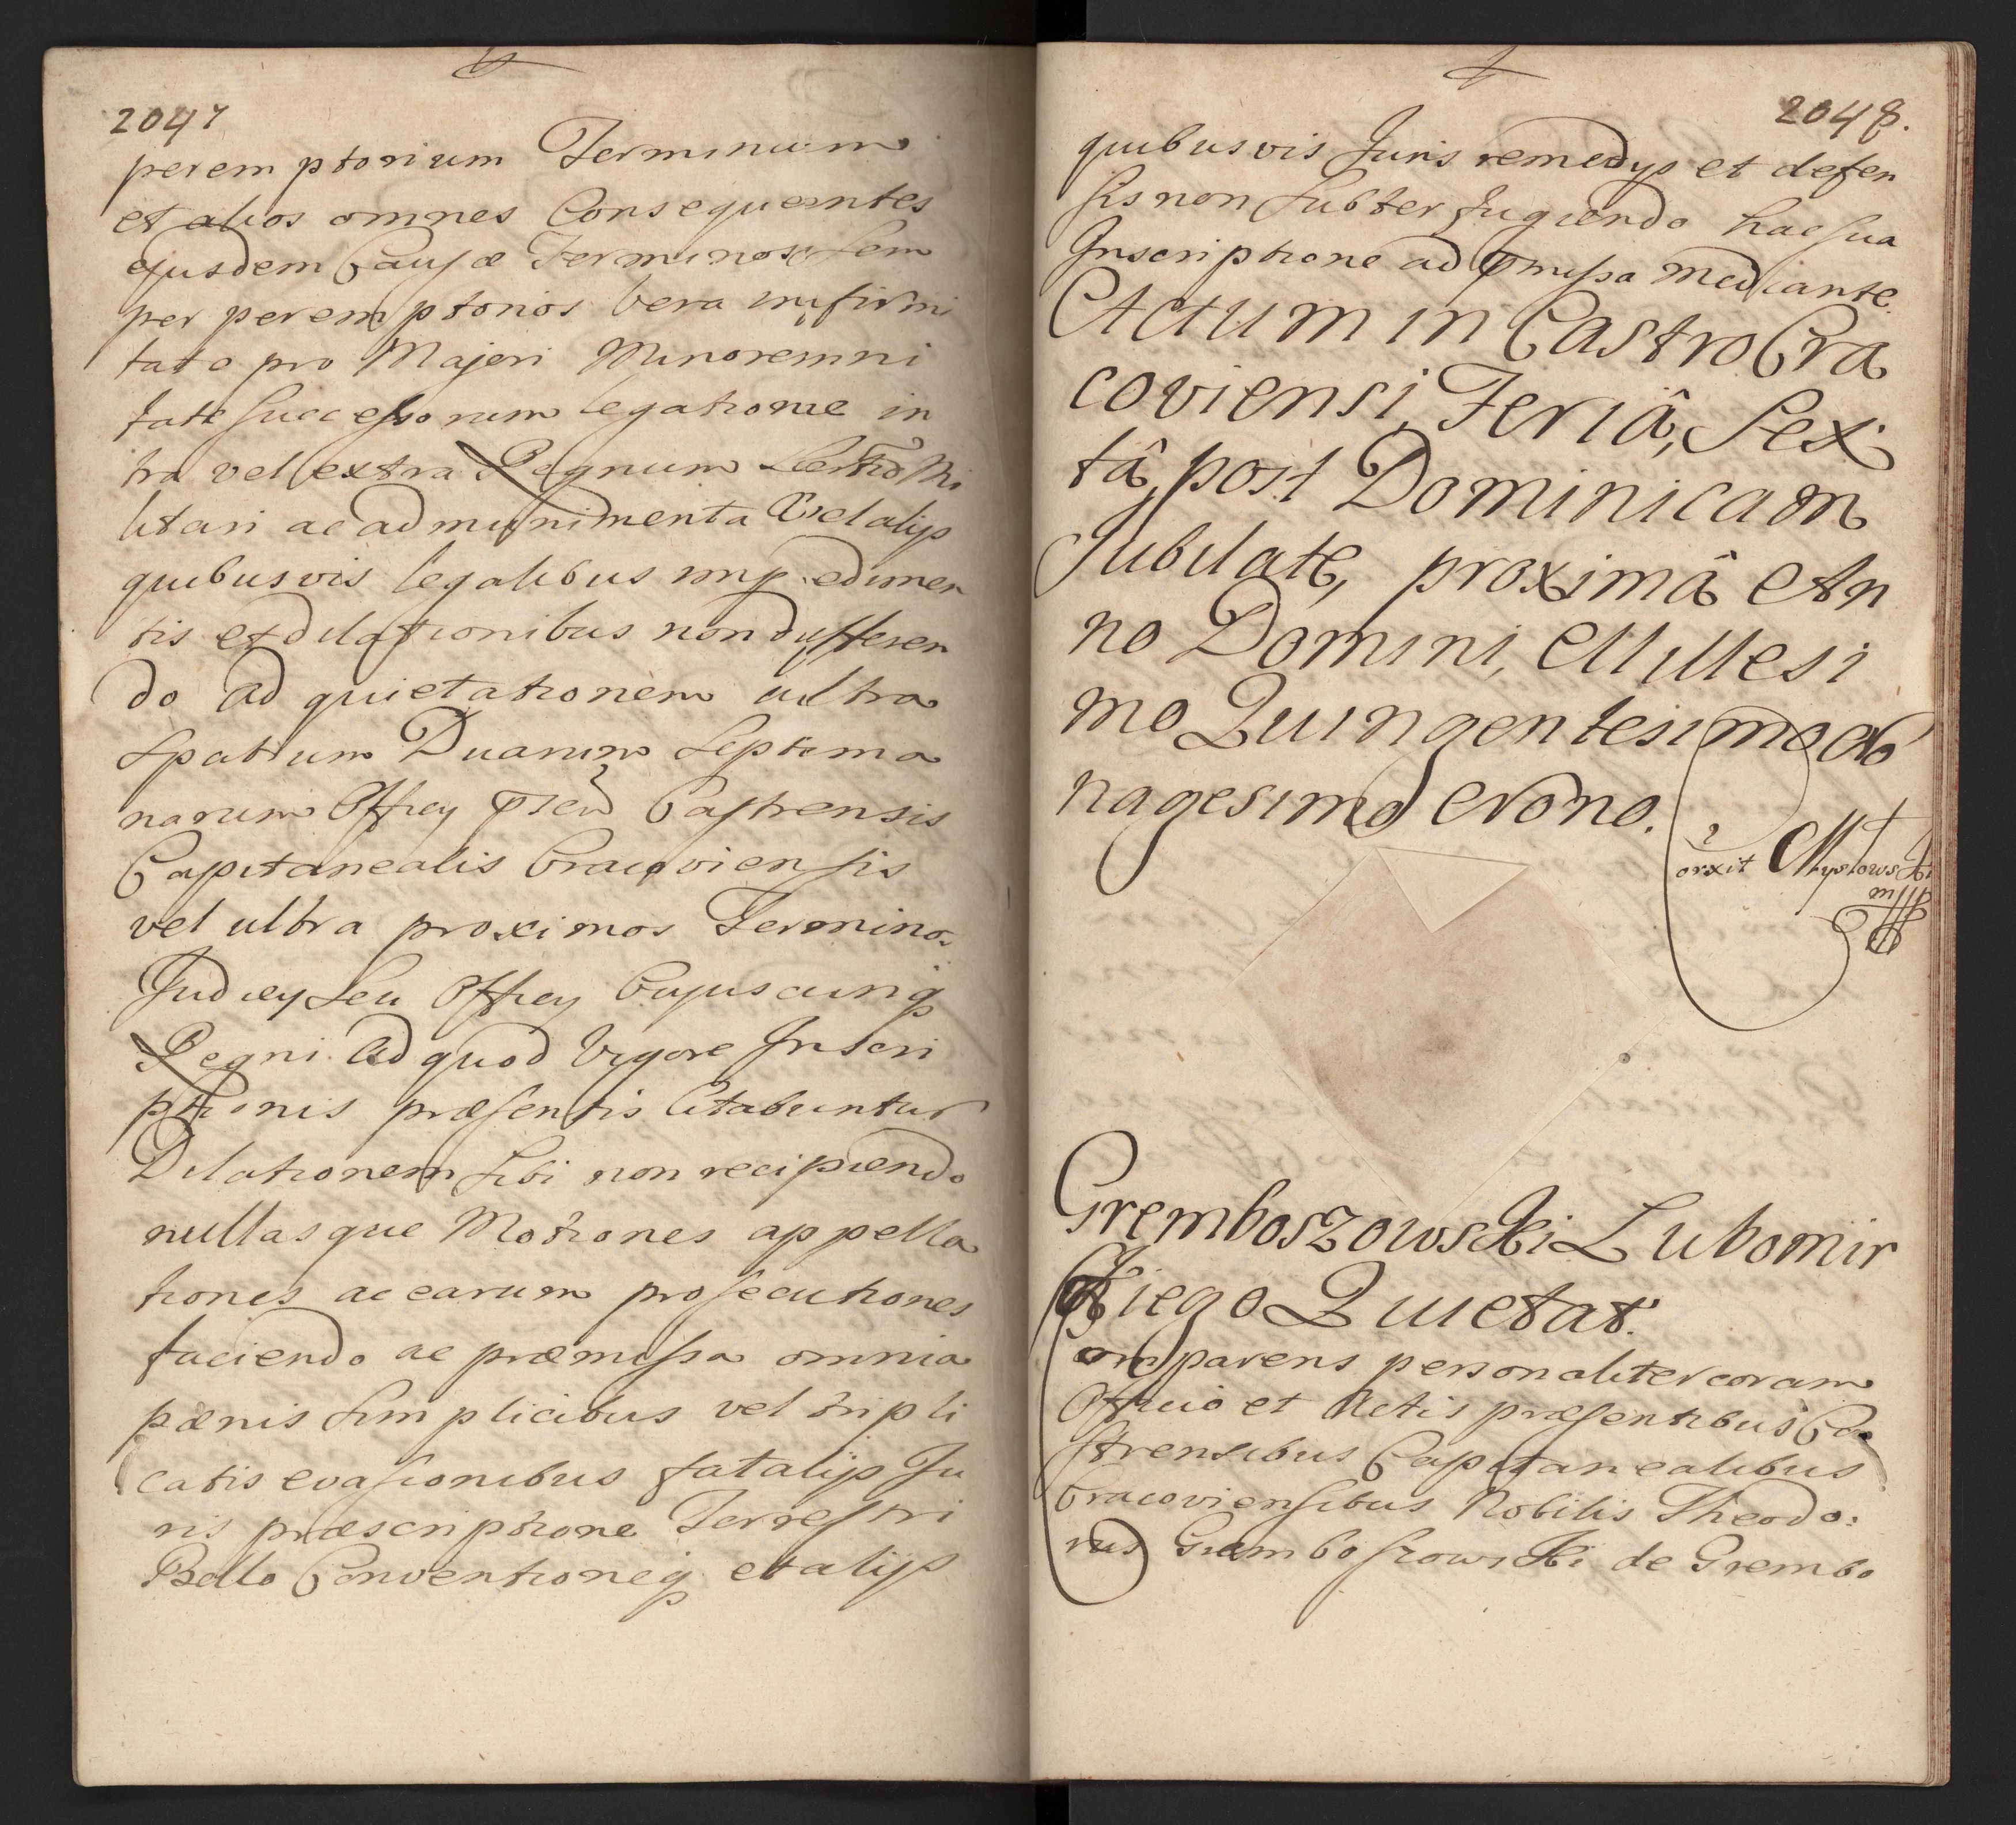 2047
peremptorium Terminum
et alios omnes Consequentes
ejusdem Causæ Terminos sem
per peremptorios vera infirmi
tate pro Majori Minorenni
tate Successorum legatione in
tra vel extra Regnum Mi
litari ac ad munimenta Vel alijs
quibusvis legalibus impedimen
tis et dilationibus non differen
do ad quietationem ultra
Spatium Duarum Septima
narum Officij Castrensis
Capitanealis Cracoviensis
vel ultra proximos Terminos
Judicij Seu Officij Cujuscunq
Regni ad quod Vigore Inscri
ptionis præsentis Citabuntur
Dilationem Sibi non recipiendo
nullasque Motiones appella
tiones ac earum prosecutiones
faciendo ac præmissa omnia
pænis Simplicibus vel tripli
catis evasionibus fatalijs Ju
ris præscriptione Terrestri
Bello Conventioneq et alijs
2048.
quibusvis Juris remedijs et defen
sis non Subterfugiendo hac sua
Inscriptione ad pmissa mediante.
Actum in Castro Cra
coviensi, Feriâ, Sex
tâ, post Dominicam
Jubilate, proximâ An
no Domini, Millesi
mo Quingentesimo No
nagesimo Nono.
Gremboszowski Lubomir
skiego Quietat.
Comparens personaliter coram
Officio et Actis præsentibus Ca
strensibus Capitanealibus
Cracoviensibus Nobilis Theodo:
rus Gremboszowski de Grembo